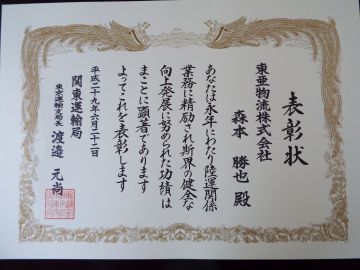 表彰状
東亜物流株式会社
森本 勝也 殿
あなたは永年にわたり陸運関係
業務に精励され斯界の健全な
向上発展に努められた功績は
まことに顕著であります
よってこれを表彰します
平成二十九年六月二十二日
関東運輸局
東京運輸支局長 渡邉 元尚